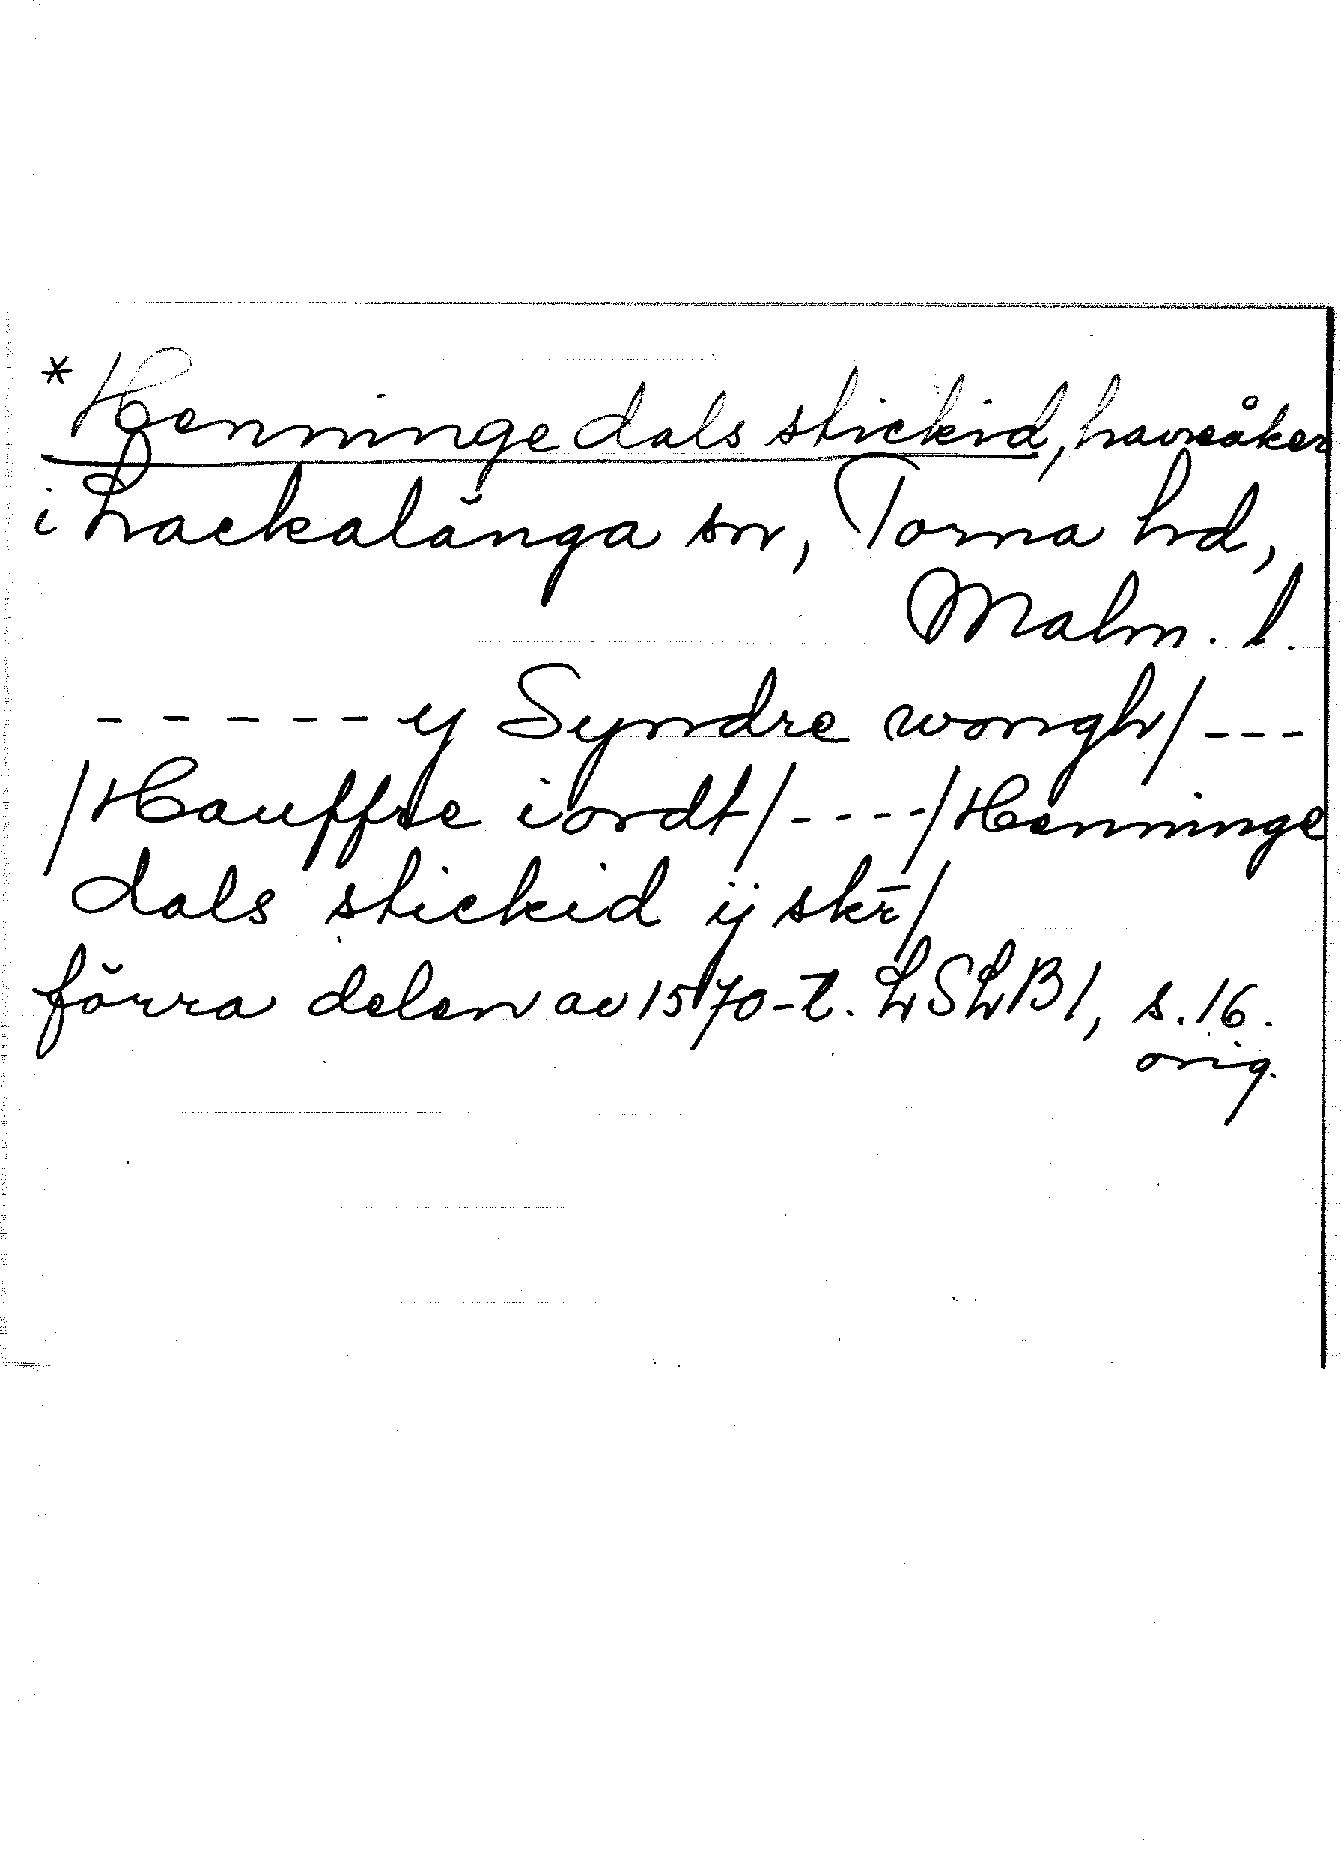 *Henninge dals stickid, havreåker
i Lackalänga sn, Torna hd,
Malm. l.
- - - - - y Syndre wongh/ - - -
/Hauffre iordt/ - - - - /Henninge
dals stickid ij skr̄/
förra delen av 1570-t. LSLB 1, s. 16.
orig.